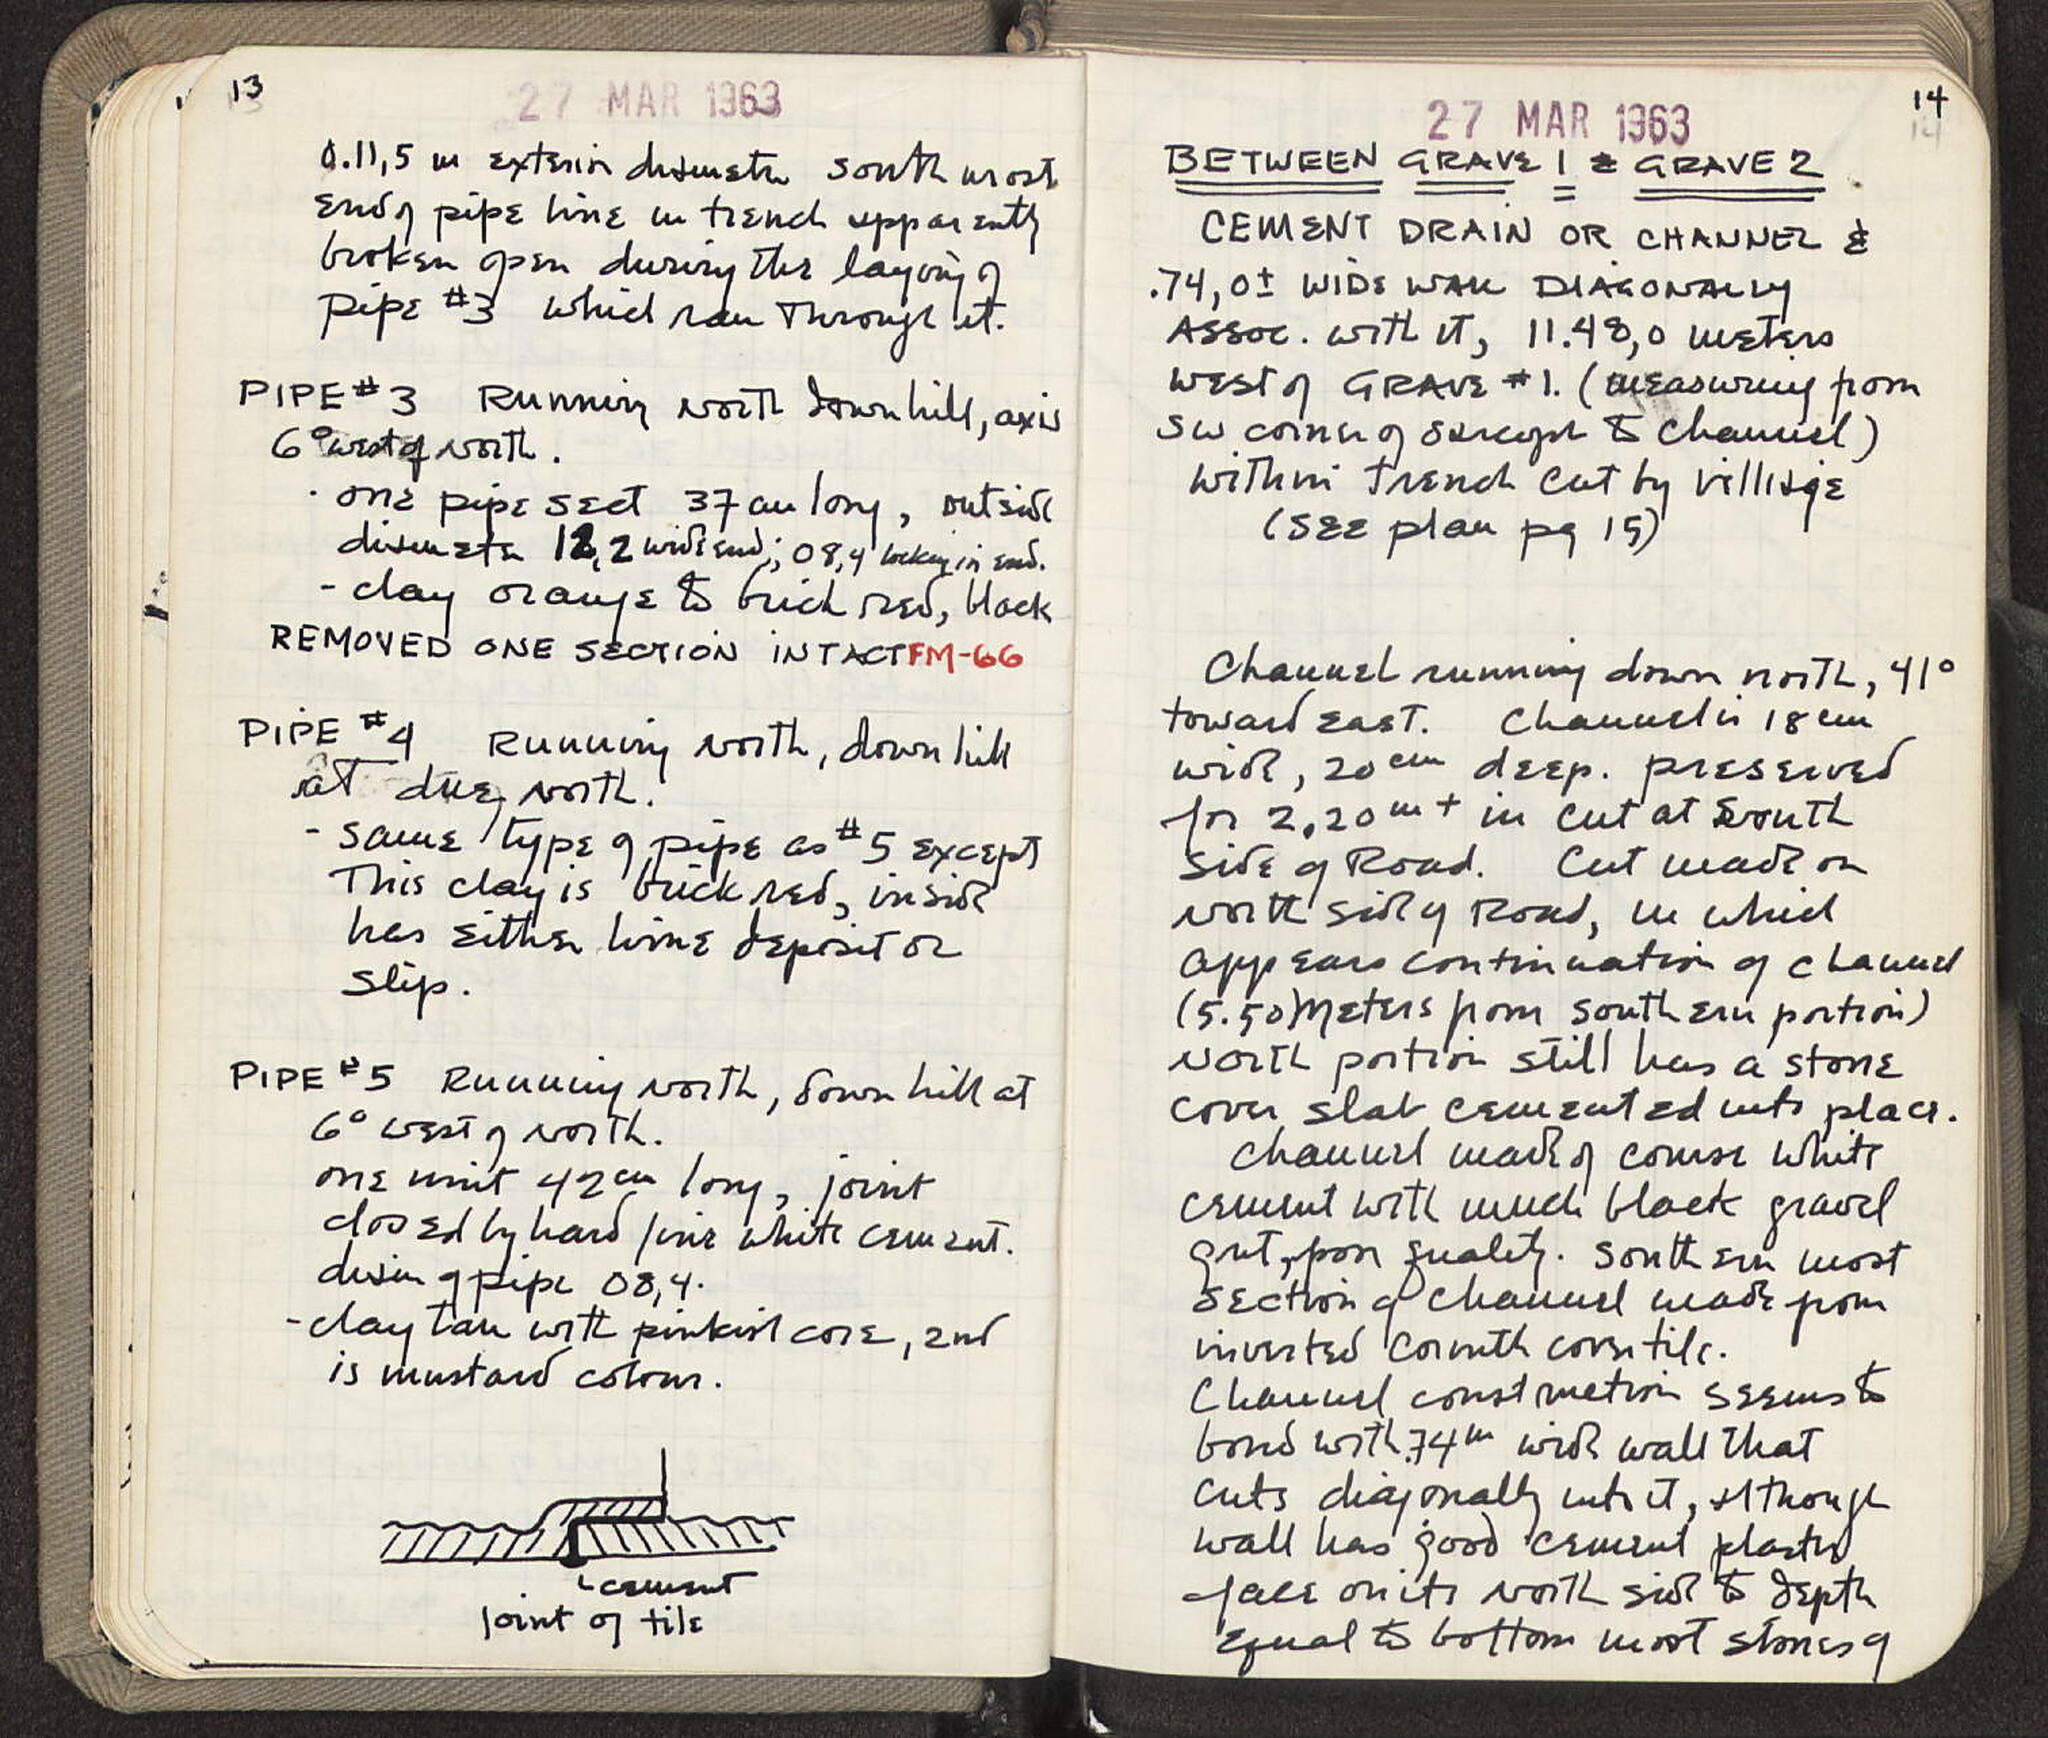 13
27 MAR 1963
0.11,5 m exterior diameter southmost
end of pipe line in trench apparently
broken open during the laying of
pipe #3 which ran through it.
PIPE #3 Running north down hill, axis
6° west of north.
· one pipe sect 37 cm long, outside
diameter 12,2 wide end; 08,4 locking in end.
- clay orange to brick red, black
REMOVED ONE SECTION INTACT FM-66
PIPE #4 Running north, down hill
at due north.
- same type of pipe as #5 except
This clay is brick red, inside
has either lime deposit or
slip.
PIPE #5 Running north, down hill at
6° west of north.
one unit 42 cm long, joint
closed by hard fine white cement.
diam of pipe 08,4.
- clay tan with pinkish core, 2nd
is mustard colour.
cement
joint of tile
14
27 MAR 1963
BETWEEN GRAVE 1 & GRAVE 2
CEMENT DRAIN OR CHANNEL &
.74,0± WIDE WALL DIAGONALLY
ASSOC. with it, 11.48,0 meters
west of GRAVE #1. (measuring from
SW corner of to channel)
within trench cut by village
(SEE plan pg 15)
Channel running down north, 41°
toward east. Channel is 18 cm
wide, 20 cm deep. preserved
for 2.20 m + in cut at south
side of Road. Cut made on
north side of Road, in which
appears continuation of channel
(5.50 Meters from southern portion)
North portion still has a stone
cover slab cemented into place.
Channel made of course white
cement with much black gravel
grit, poor quality. Southern most
section of channel made from
inverted Corinth cover tile.
Channel construction seems to
bond with .74 m wide wall that
cuts diagonally into it, although
wall has good cement plaster
face on its north side to depth
equal to bottom most stones of